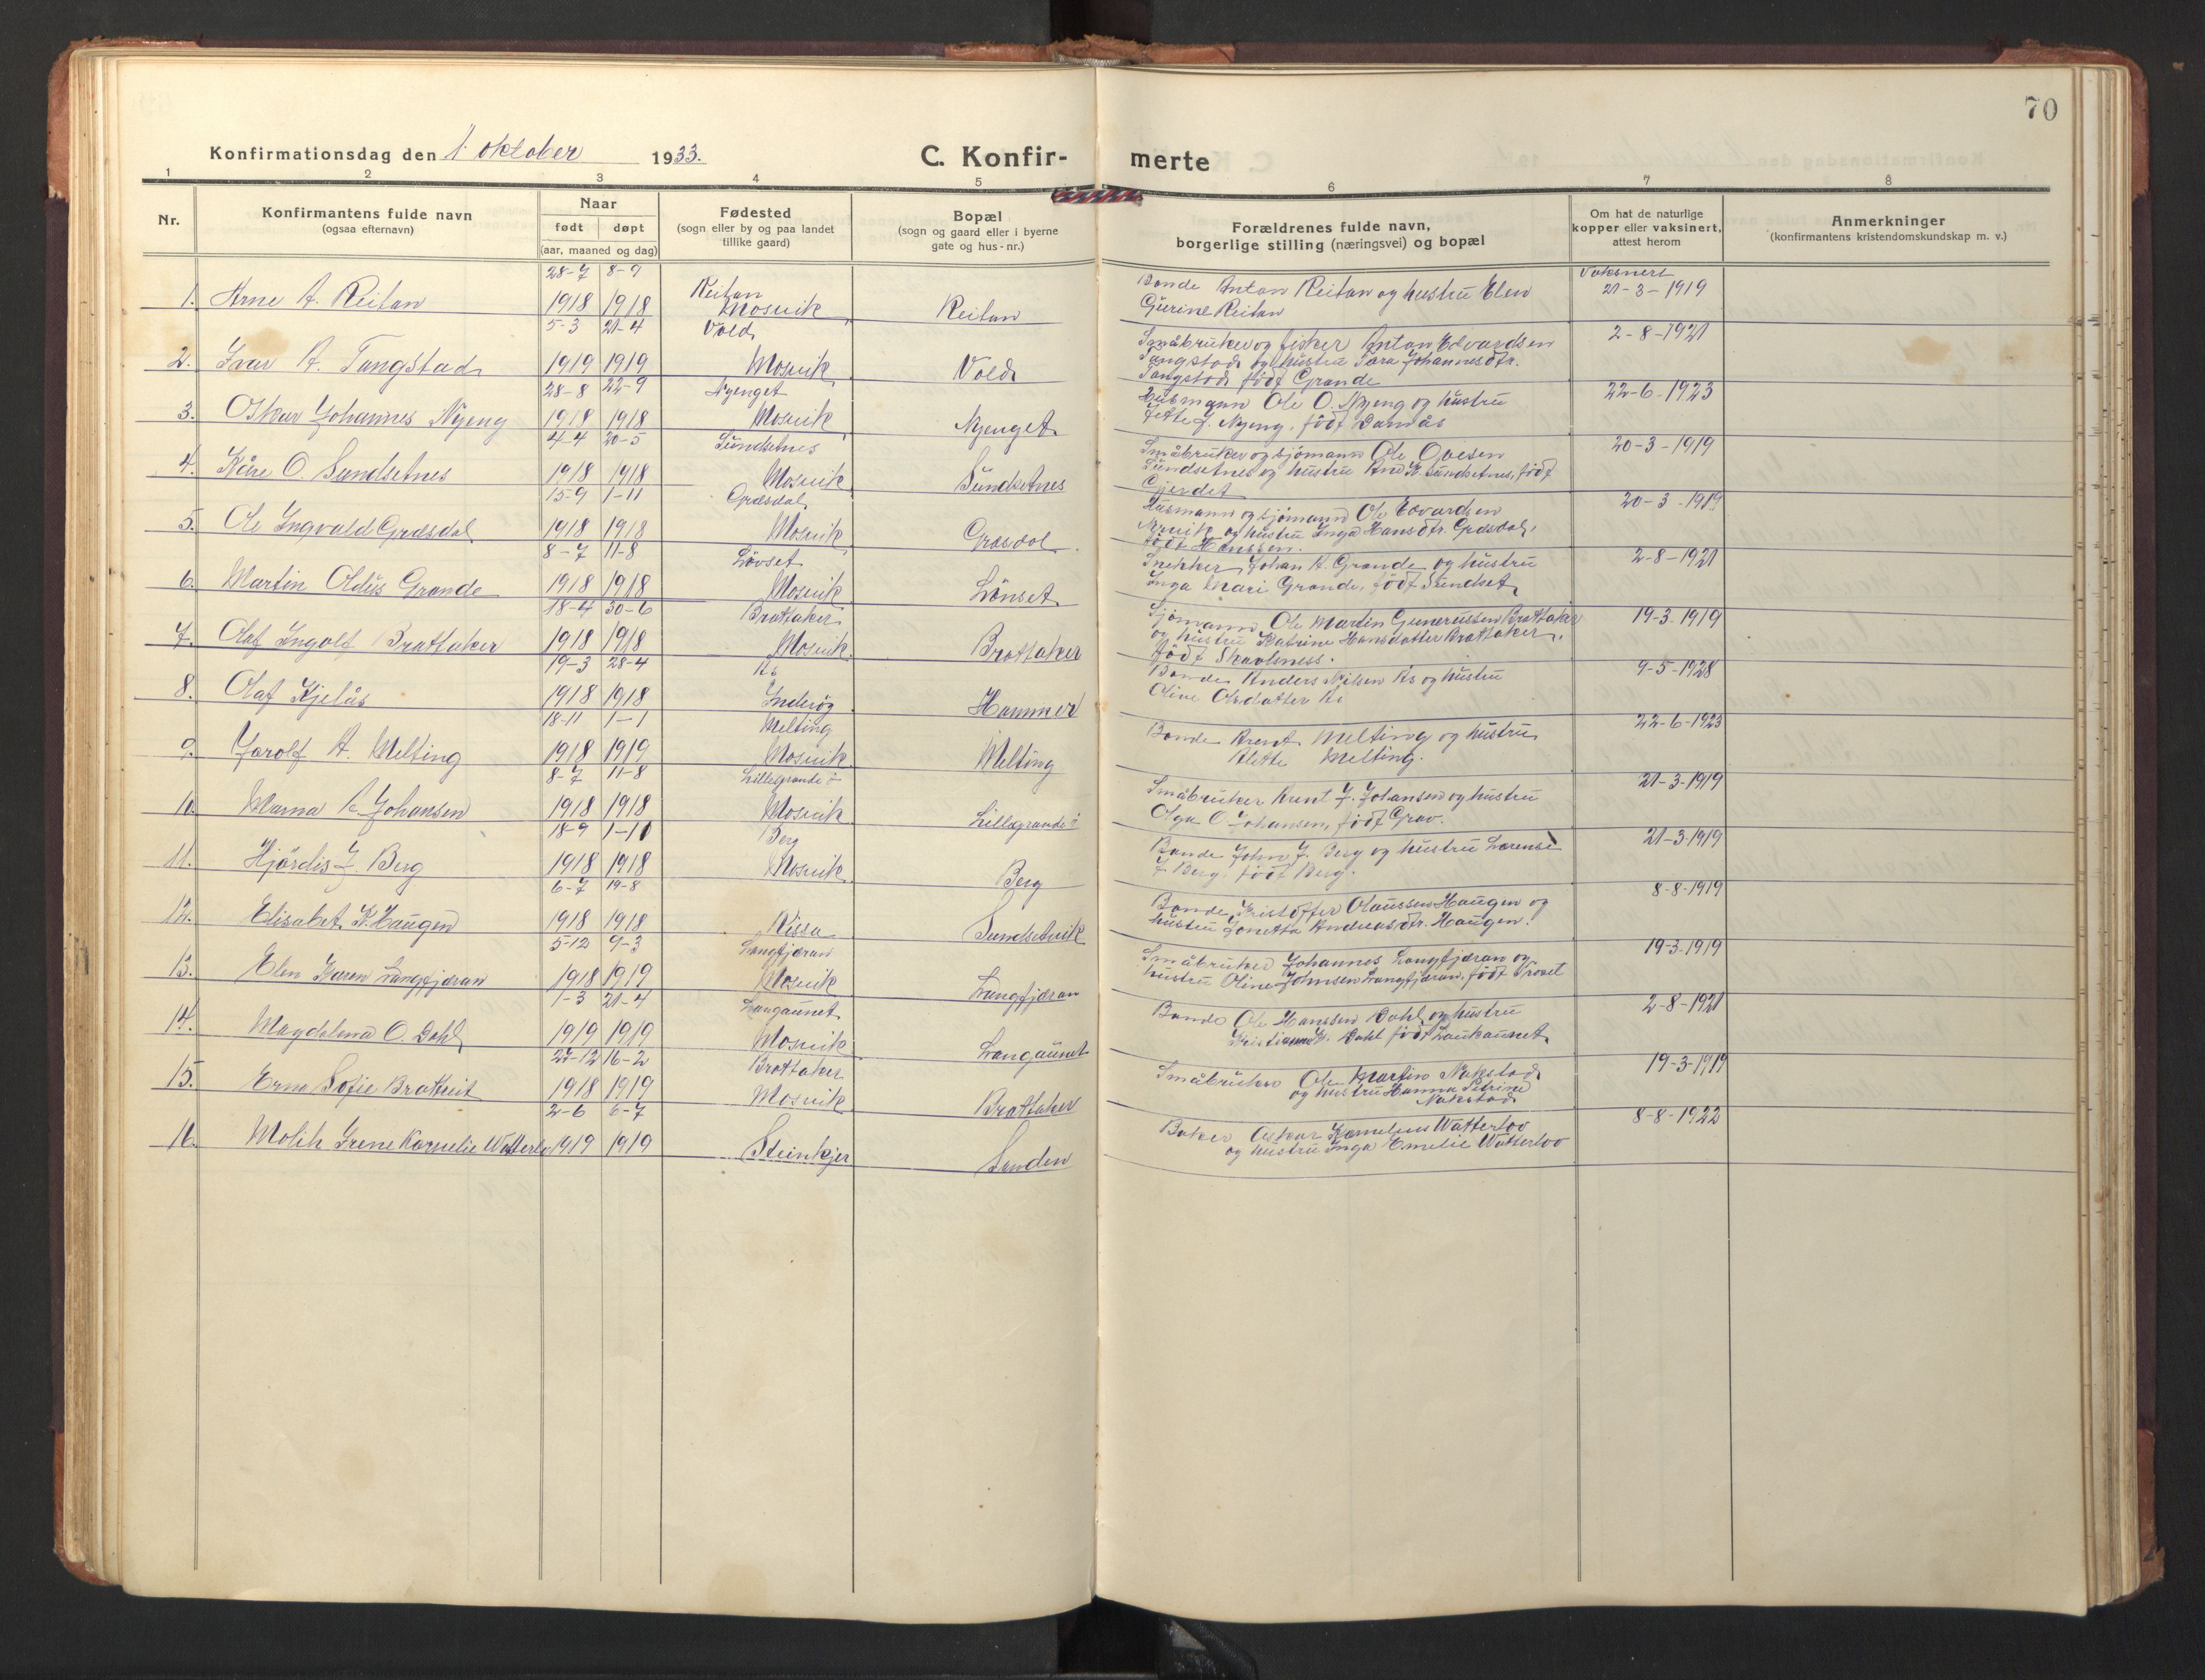 70
Konfirmationsdag den 1. oktober 1933.
C. Konfir- merte
1 2 3 4 5 6 7 8
Nr.
Konfirmantens fulde navn
(ogsaa efternavn)
Naar
født døpt
(aar, maaned og dag)
Fødested
(sogn eller by og paa landet
tillike gaard)
Bopæl
(sogn og gaard eller i byerne
gate og hus-nr.)
Forældrenes fulde navn,
borgerlige stilling (næringsvei) og bopæl
Om hat de naturlige
kopper eller vaksinert,
attest herom
Anmerkninger
(konfirmantens kristendomskundskap m. v.)
28-7 8-9 Reitan Bonde Anton Reitan og hustru Elen Vaksinert
1. Arne A. Reitan 1918 1918 Mosvik Reitan Gurine Reitan 21-3-1919
5-3 21-4 Vold Småbruker og fisker Anton Edvardsen 2-8-1921
2. Ivar A. Tangstad 1919 1919 Mosvik Vold Tangstad og hustru Sara Johannesdtr.
Tangstad født Grande
28-8 22-9 Nyenget Husmann Ole O. Nyeng og hustru 22-6-1923
3. Oskar Johannes Nyeng 1918 1918 Mosvik Nyenget Jette J. Nyeng, født Damås
4-4 20-5 Sundsetnes Småbruker og sjømann Ole Ovesen 20-3-1919
4. Kåre O. Sundsetnes 1918 1918 Mosvik Sundsetnes Sundsetnes og hustru Ane K. Sundsetnes, født
Gjerdet
15-9 1-11 Græsdal Husmann og sjømann Ole Edvardsen 20-3-1919
5. Ole Ingvald Græsdal 1918 1918 Mosvik Græsdal og hustru Inga Hansdtr. Græsdal,
født Hanssen.
8-7 11-8 Lövset Snekker Johan A. Grande og hustru 2-8-1921
6. Martin Oldus Grande 1918 1918 Mosvik Lönset Inga Mari Grande, født Sundset
18-4 30-6 Brattaker Sjømann Ole Martin Gunerussen Brattaker 19-3-1919
7. Olaf Ingolf Brattaker 1918 1918 Mosvik Brattaker og hustru Katrine Hansdatter Brattaker,
født Skavlsness.
19-3 28-4 As Bonde Anders Nilsen As og hustru 9-5-1928
8. Olaf Kjelås 1918 1918 Inderøy Hammer Oline Olsdatter As
18-11 1-1 Melting Bonde Arent Melting og hustru 22-6-1923
9. Jarolf A. Melting 1918 1919 Mosvik Melting Alette Melting.
8-7 11-8 Lillegrande ö Småbruker Arent J. Johansen og hustru 21-3-1919
10. Marna A. Johansen 1918 1918 Mosvik Lillegrande ö Olga O Johansen, født Grav.
18-9 1-11 Berg Bonde John J. Berg og hustru Lorense 21-3-1919
11. Hjördis J. Berg 1918 1918 Mosvik Berg J. Berg, født Berg.
6-7 19-8 Bonde Kristoffer Olaussen Haugen og 8-8-1919
12. Elisabet K. Haugen 1918 1918 Rissa Sundsetvik hustru Jonetta Andreasdtr. Haugen.
5-12 9-3 Langfjæran Småbruker Johannes Langfjæran og 19-3-1919
13. Elen Karen Langfjæran 1918 1919 Mosvik Langfjæran hustru Oline Johnsen Langfjæran, født Vroset
1-3 21-4 Langaunet Bonde Ole Hanssen Dahl og hustru 2-8-1921
14. Magdalena O. Dahl 1919 1919 Mosvik Langaunet Kristianne K. Dahl født Laukaunet
27-12 16-2 Brattaker Småbruker Ole Martin Nakstad 19-3-1919
15. Erna Sofie 1918 1919 Mosvik Brattaker og hustru Hanna Petrine
Nakstad
2-6 6-7 Baker Oskar Kornelius Watterloo 8-8-1922
16. Molih Irene Kornelie Watterlo 1919 1919 Steinkjer Sanden og hustru Inga Emelie Watterloo